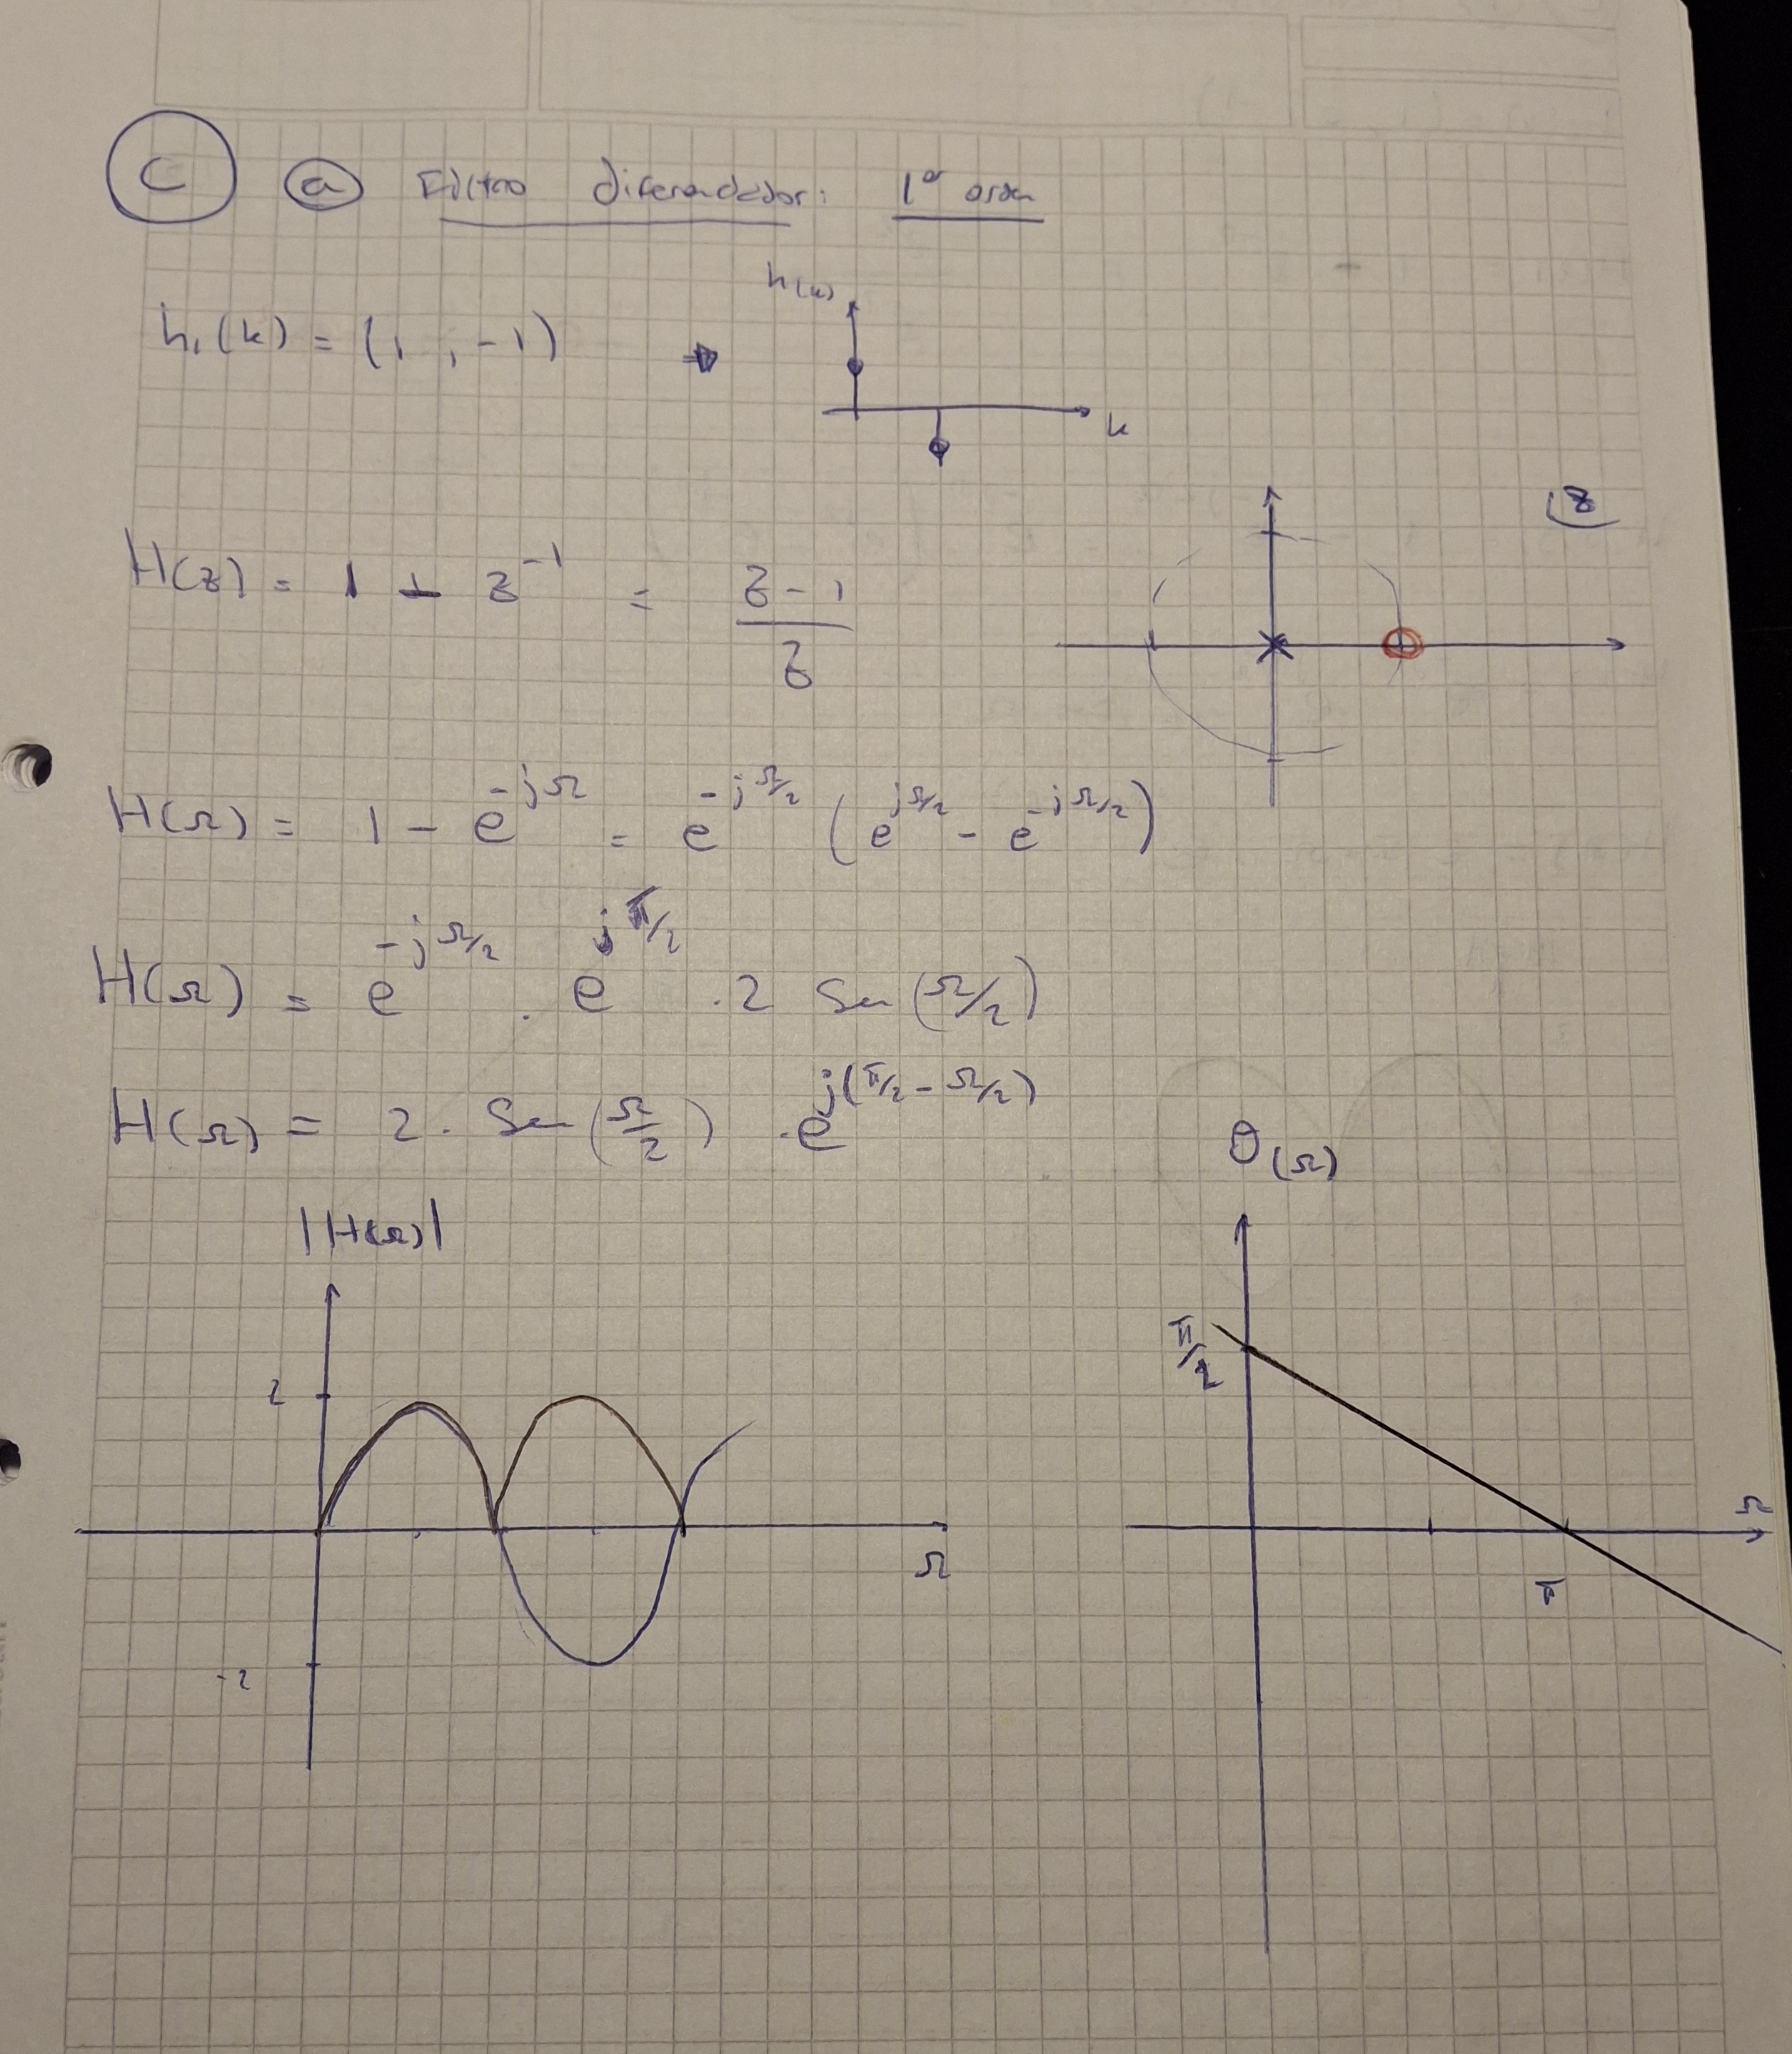 C a Filtro diferenciador: 1º orden
h₁(k) = (1 , -1)
h(k)
k
z
H(z) = 1 - z⁻¹ = (z - 1)/z
H(Ω) = 1 - e^(-jΩ) = e^(-jΩ/2) (e^(jΩ/2) - e^(-jΩ/2))
H(Ω) = e^(-jΩ/2) . e^(jπ/2) . 2 Sen(Ω/2)
H(Ω) = 2 . Sen(Ω/2) . e^(j(π/2 - Ω/2))
|H(Ω)|
2
-2
Ω
θ(Ω)
π/2
π
Ω